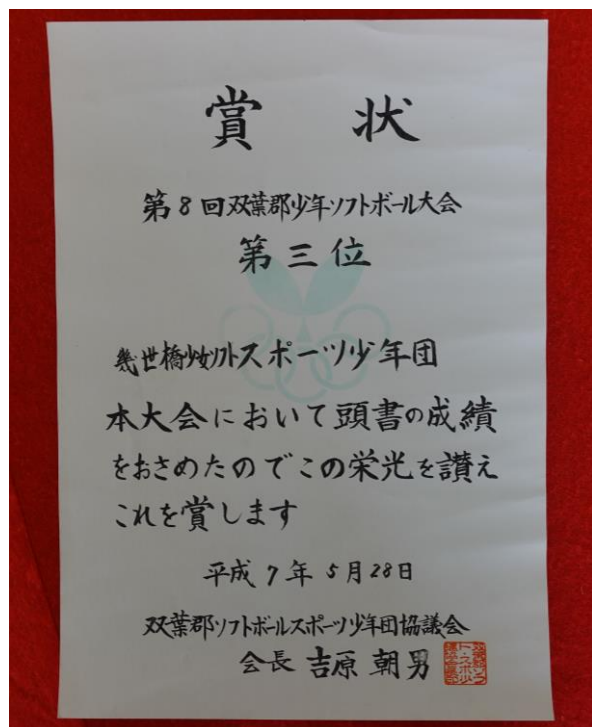 賞 状
第8回双葉郡少年ソフトボール大会
第三位
幾世橋少女ソフトスポーツ少年団
本大会において頭書の成績
をおさめたのでこの栄光を讃え
これを賞します
平成7年5月28日
双葉郡ソフトボールスポーツ少年団協議会
会長 吉原朝男